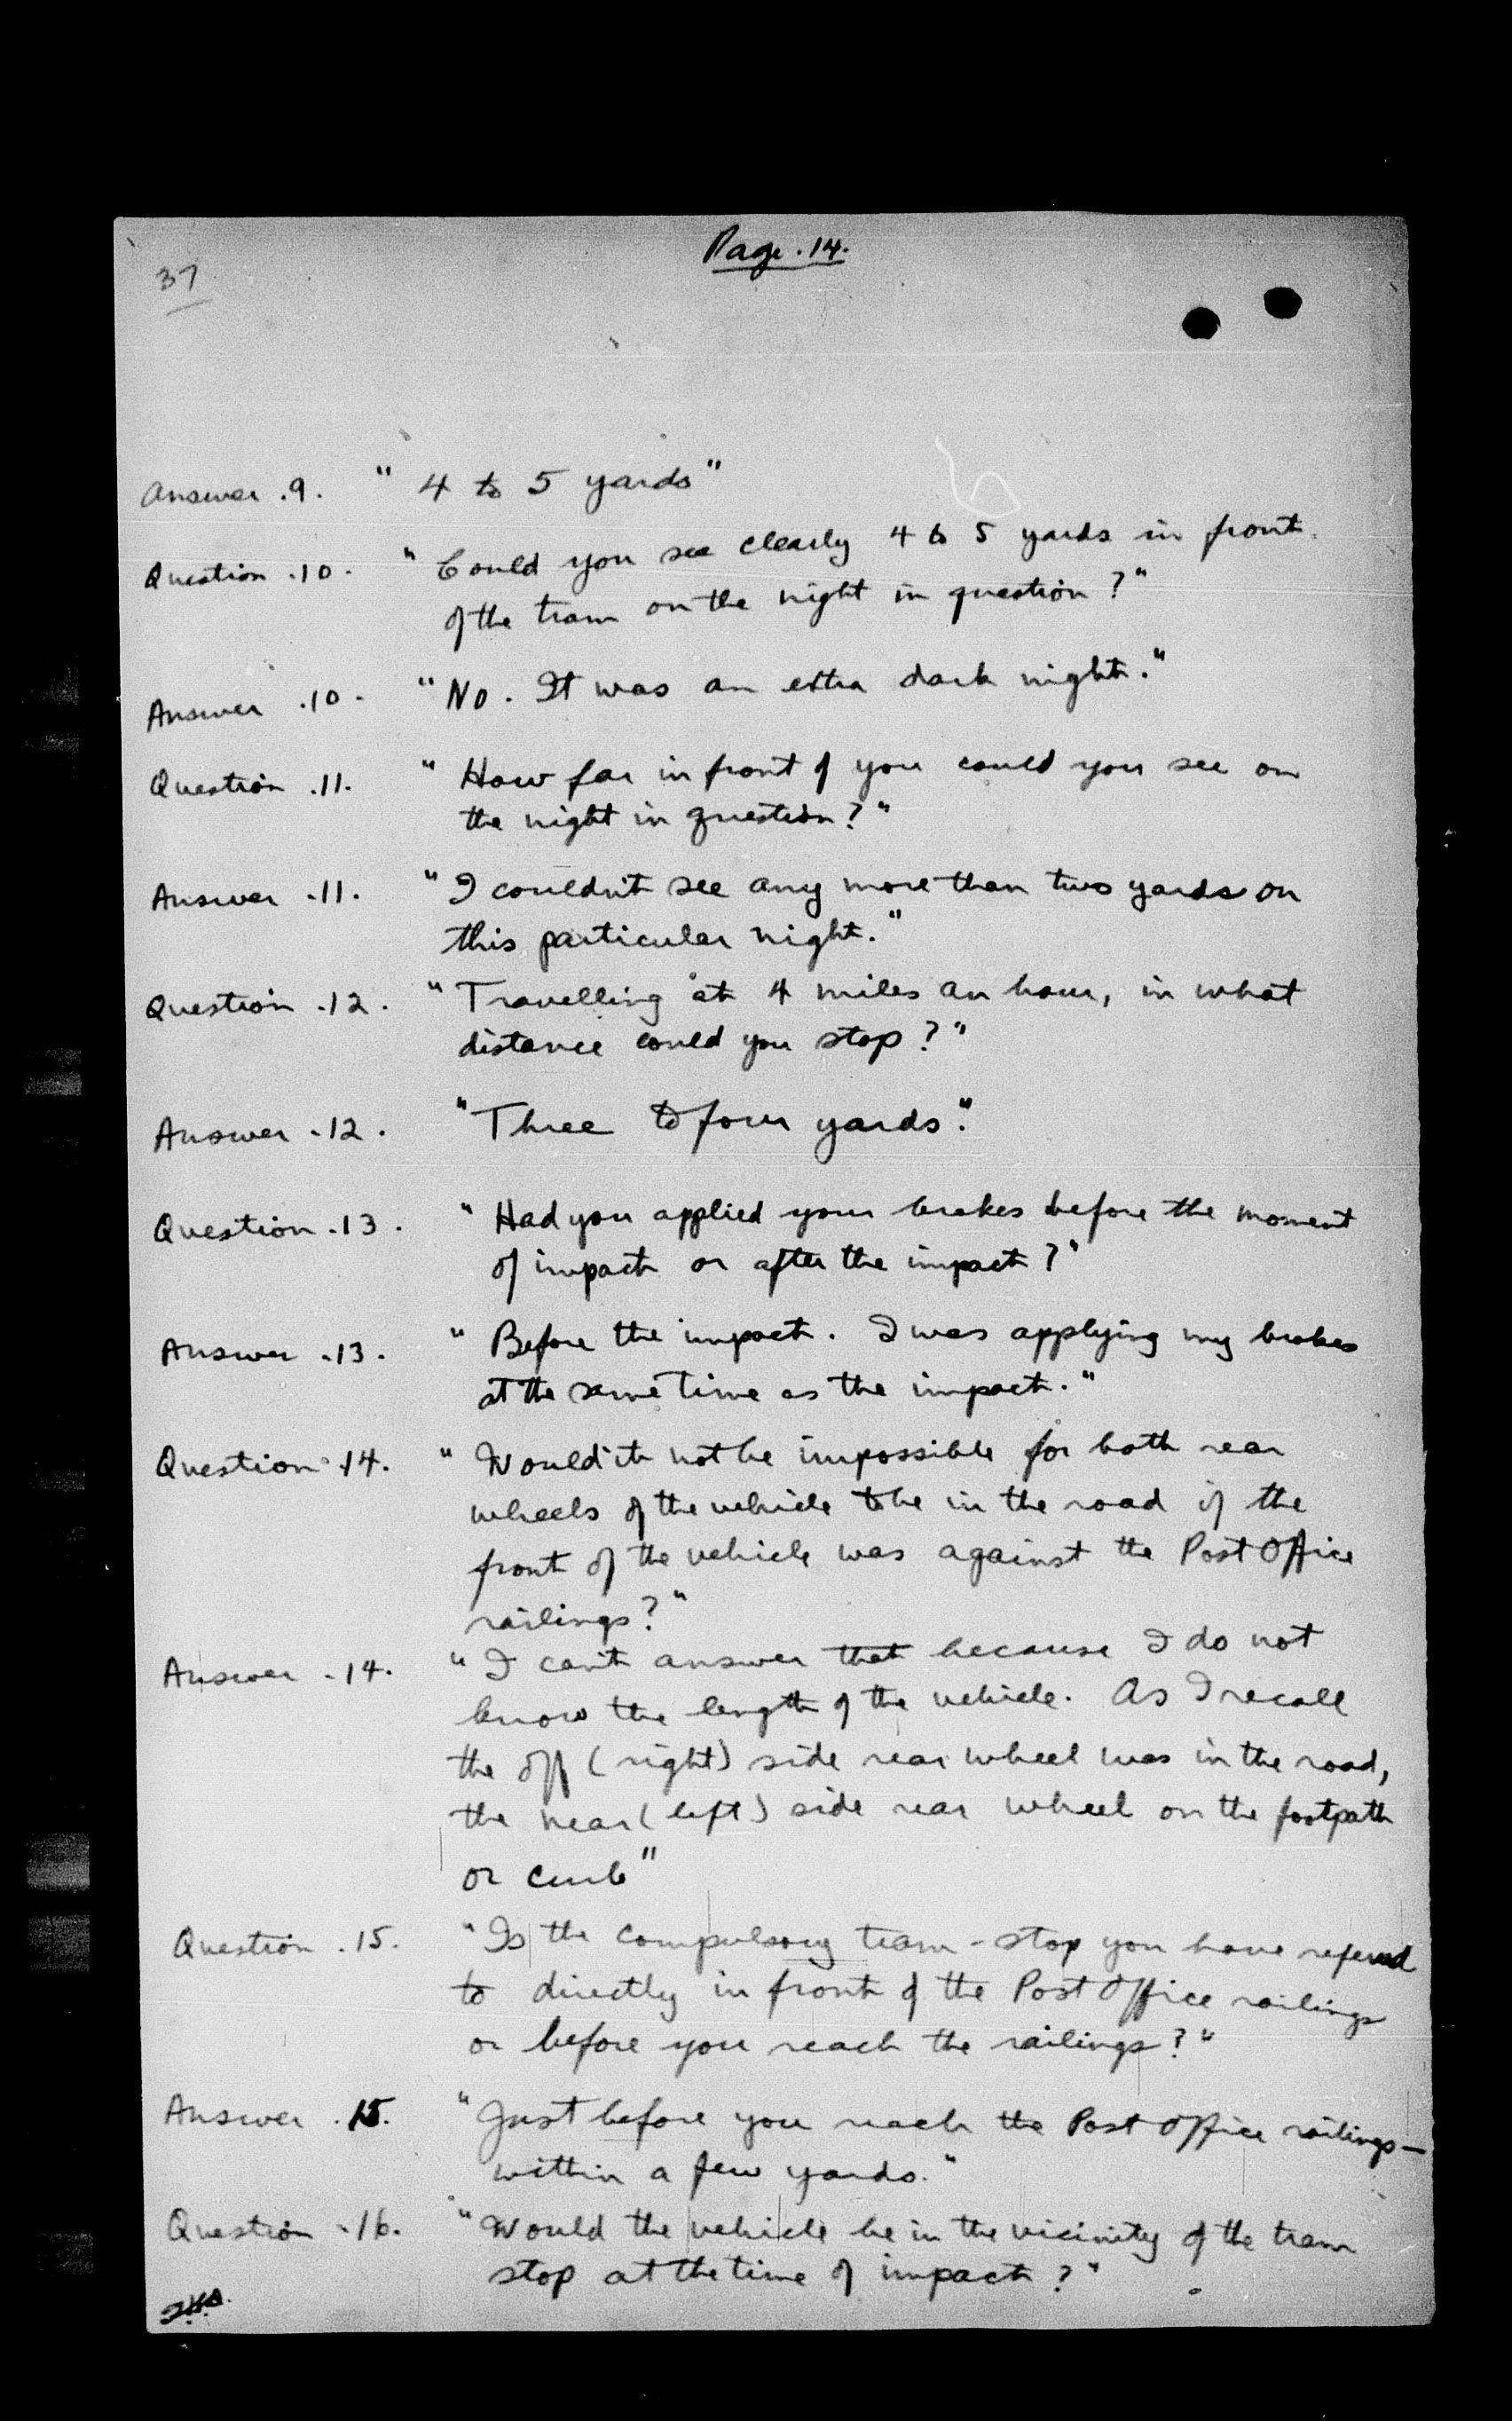 Page.14.
37
Answer .9. " 4 to 5 yards"
Question .10. " Could you see clearly 4 to 5 yards in front
of the tram on the night in question?"
Answer .10. "No. It was an extra dark night."
Question .11. " How far in front of you could you see on
the night in question?"
Answer .11. "I couldn't see any more than two yards on
this particular night."
Question .12. "Travelling at 4 miles an hour, in what
distance could you stop?"
Answer .12. "Three to four yards."
Question .13. " Had you applied your brakes before the moment
of impact or after the impact?"
Answer .13. " Before the impact. I was applying my brakes
at the same time as the impact."
Question .14. " Would it not be impossible for both rear
wheels of the vehicle to be in the road if the
front of the vehicle was against the Post Office
railings?"
Answer .14. " I can't answer that because I do not
know the length of the vehicle. As I recall
the off (right) side rear wheel was in the road,
the near (left) side rear wheel on the footpath
or curb"
Question .15. "Is the compulsory tram-stop you have referred
to directly in front of the Post Office railings
or before you reach the railings?"
Answer .15. "Just before you reach the Post Office railings—
within a few yards."
Question .16. "Would the vehicle be in the vicinity of the tram
stop at the time of impact?"